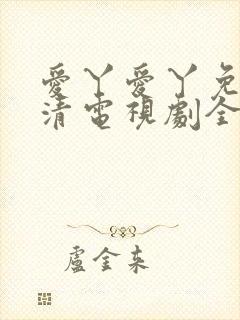 愛丫愛丫免
清電視劇全
盧金来